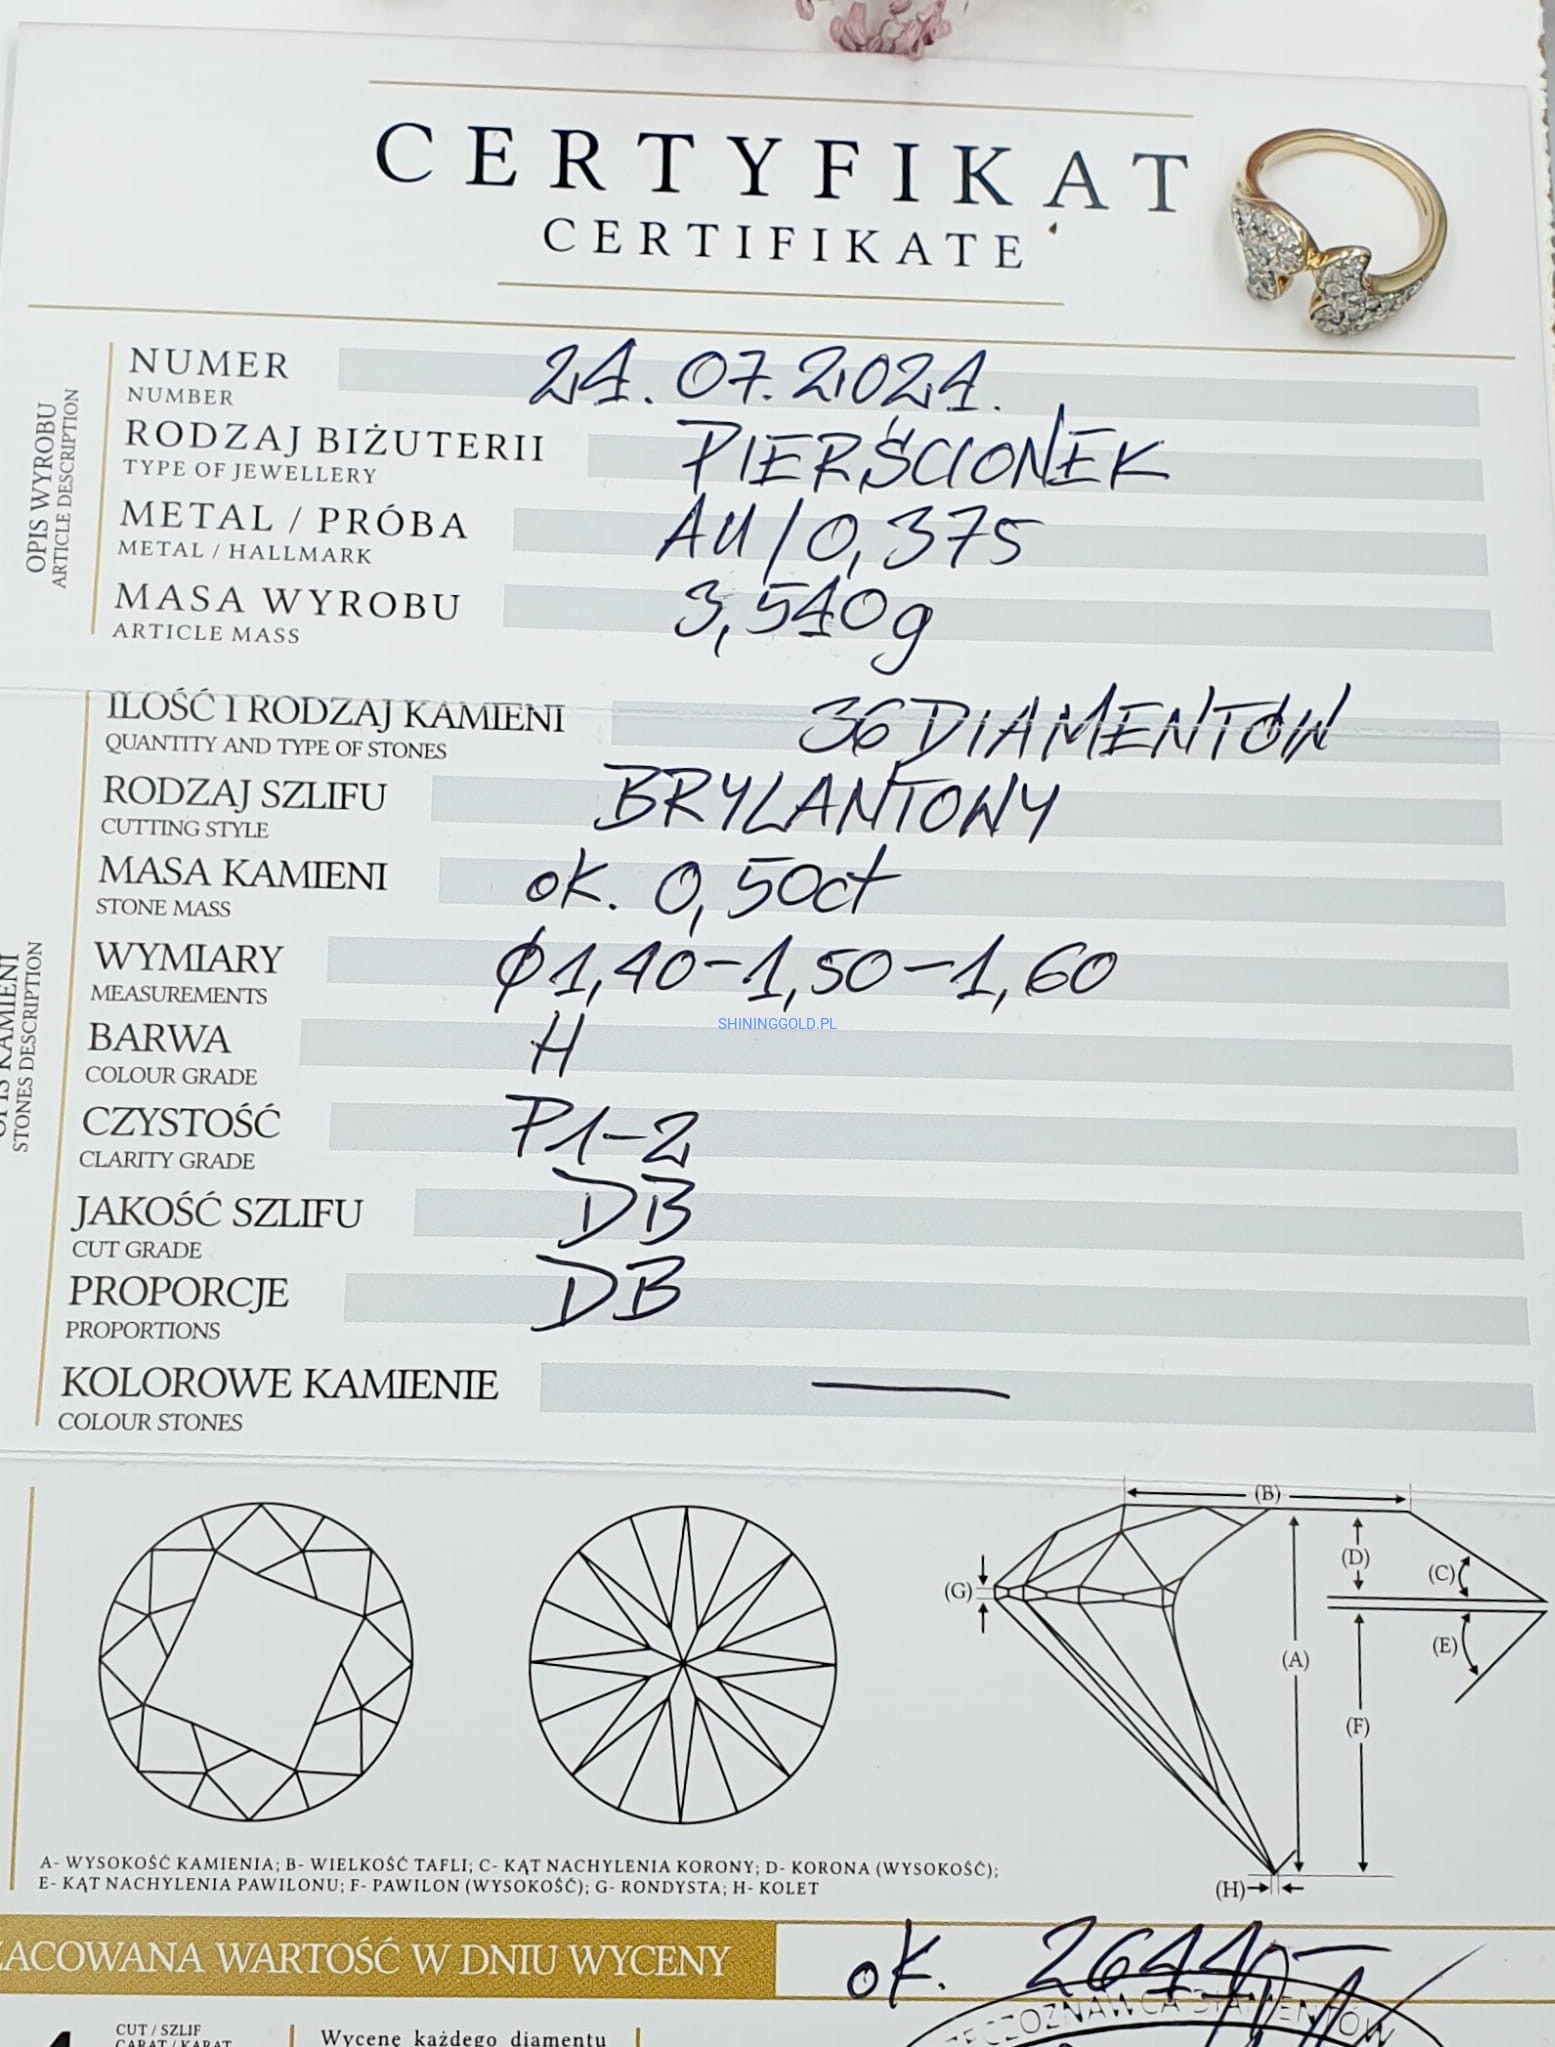 CERTYFIKAT
CERTIFIKATE
OPIS WYROBU
ARTICLE DESCRIPTION
NUMER 24.07.2024.
NUMBER
RODZAJ BIŻUTERII PIERŚCIONEK
TYPE OF JEWELLERY
METAL / PRÓBA AU/0,375
METAL / HALLMARK
MASA WYROBU 3,540g
ARTICLE MASS
STONES DESCRIPTION
ILOŚĆ I RODZAJ KAMIENI 36 DIAMENTÓW
QUANTITY AND TYPE OF STONES
RODZAJ SZLIFU BRYLANTOWY
CUTTING STYLE
MASA KAMIENI ok. 0,50ct
STONE MASS
WYMIARY ϕ1,40-1,50-1,60
MEASUREMENTS
SHININGGOLD.PL
BARWA H
COLOUR GRADE
CZYSTOŚĆ P1-2
CLARITY GRADE
JAKOŚĆ SZLIFU DB
CUT GRADE
PROPORCJE DB
PROPORTIONS
KOLOROWE KAMIENIE —
COLOUR STONES
(B)
(D)
(C)
(G)
(E)
(A)
(F)
(H)
A- WYSOKOŚĆ KAMIENIA; B- WIELKOŚĆ TAFLI; C- KĄT NACHYLENIA KORONY; D- KORONA (WYSOKOŚĆ);
E- KĄT NACHYLENIA PAWILONU; F- PAWILON (WYSOKOŚĆ); G- RONDYSTA; H- KOLET
ZACOWANA WARTOŚĆ W DNIU WYCENY ok.
DIAMENTÓW
CUT / SZLIF
CARAT / KARAT
Wycenę każdego diamentu